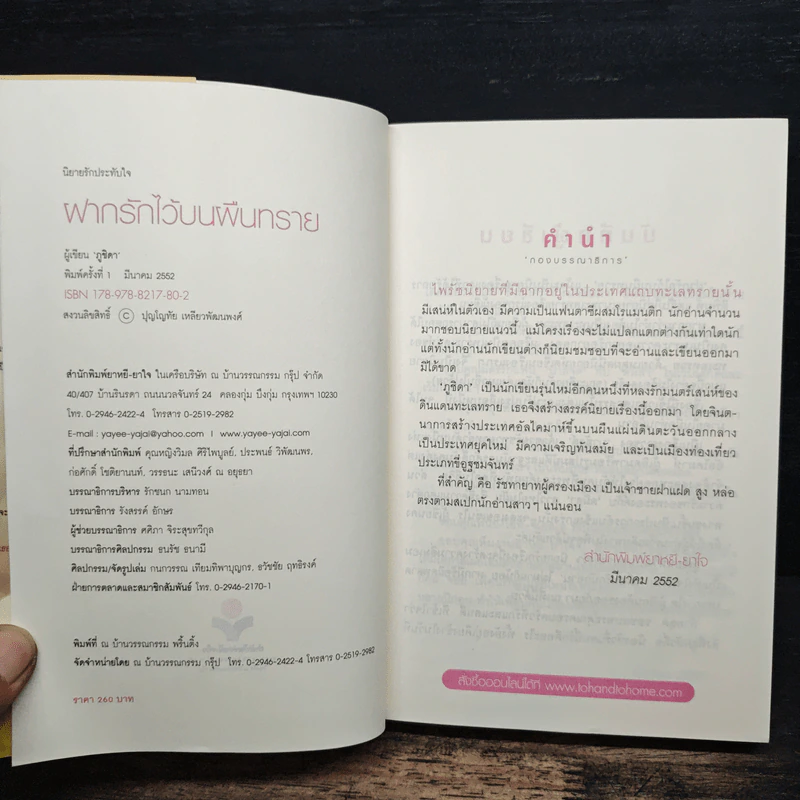 นิยายรักประทับใจ
ฝากรักไว้บนผืนทราย
ผู้เขียน 'ภูชิดา'
พิมพ์ครั้งที่ 1 มีนาคม 2552
ISBN 178-978-8217-80-2
สงวนลิขสิทธิ์ © ปุญโญทัย เหลียวพัฒนพงศ์
สำนักพิมพ์ยาหยี-ยาใจ ในเครือบริษัท ณ บ้านวรรณกรรม กรุ๊ป จำกัด
40/407 บ้านรินรดา ถนนนวลจันทร์ 24 คลองกุ่ม บึงกุ่ม กรุงเทพฯ 10230
โทร. 0-2946-2422-4 โทรสาร 0-2519-2982
E-mail : yayee-yajai@yahoo.com | www.yayee-yajai.com
ที่ปรึกษาสำนักพิมพ์ คุณหญิงวิมล ศิริไพบูลย์, ประพนธ์ วิพัฒนพร,
ก่อศักดิ์ โชติยานนท์, วรรธนะ เสนีวงศ์ ณ อยุธยา
บรรณาธิการบริหาร รักชนก นามทอน
บรรณาธิการ รังสรรค์ อักษร
ผู้ช่วยบรรณาธิการ ศศิภา จิระสุขทวีกุล
บรรณาธิการศิลปกรรม ธนรัช ธนามี
ศิลปกรรม/จัดรูปเล่ม กนกวรรณ เทียมทิพาบุญกร, ธวัชชัย ฤทธิรงค์
ฝ่ายการตลาดและสมาชิกสัมพันธ์ โทร. 0-2946-2170-1
พิมพ์ที่ ณ บ้านวรรณกรรม พริ้นติ้ง
จัดจำหน่ายโดย ณ บ้านวรรณกรรม กรุ๊ป โทร. 0-2946-2422-4 โทรสาร 0-2519-2982
ราคา 260 บาท
คำนำ
'กองบรรณาธิการ'
ไพรัชนิยายที่มีฉากอยู่ในประเทศแถบทะเลทรายนั้น
มีเสน่ห์ในตัวเอง มีความเป็นแฟนตาซีผสมโรแมนติก นักอ่านจำนวน
มากชอบนิยายแนวนี้ แม้โครงเรื่องจะไม่แปลกแตกต่างกันเท่าใดนัก
แต่ทั้งนักอ่านนักเขียนต่างก็นิยมชมชอบที่จะอ่านและเขียนออกมา
มิได้ขาด
'ภูชิดา' เป็นนักเขียนรุ่นใหม่อีกคนหนึ่งที่หลงรักมนตร์เสน่ห์ของ
ดินแดนทะเลทราย เธอจึงสร้างสรรค์นิยายเรื่องนี้ออกมา โดยจินต-
นาการสร้างประเทศอัลไคมาห์ขึ้นบนผืนแผ่นดินตะวันออกกลาง
เป็นประเทศยุคใหม่ มีความเจริญทันสมัย และเป็นเมืองท่องเที่ยว
ประเภทขี่อูฐชมจันทร์
ที่สำคัญ คือ รัชทายาทผู้ครองเมือง เป็นเจ้าชายฝาแฝด สูง หล่อ
ตรงตามสเปกนักอ่านสาวๆ แน่นอน
สำนักพิมพ์ยาหยี-ยาใจ
มีนาคม 2552
สั่งซื้อออนไลน์ได้ที่ www.tohandtohome.com